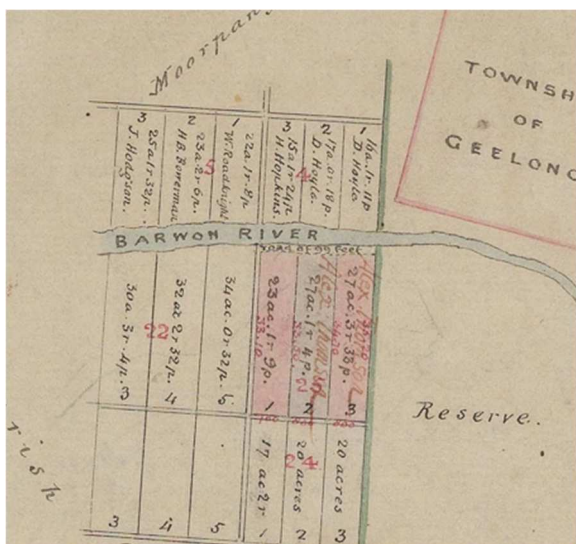 Moorpan
TOWNSH
OF
GEELONG
3
25a 1r 32p.
J. Hodgson.
2
23a. 2r. 6p.
H.B. Bowerman
1
22a. 1r. 8p
W. Roadknight
5
3
15a 1r 24p
H. Hopkins.
2
17a. 0r. 18p.
D. Hoyle.
1
16a. 1r. 11p
D. Hoyle.
4
BARWON RIVER
Road of 99 feet
30a. 3r. 4p.
3
32a 2r 32p.
4
34ac. 0r 32p.
5
22
23ac. 1r 9p.
33.10
1
27ac. 1r 4p.
Alex Thomson
2
27ac. 3r 38p.
Alex Thomson
3
Reserve.
17 ac 2r
1
20 acres
2
20 acres
3
2
4
3
4
5
rish